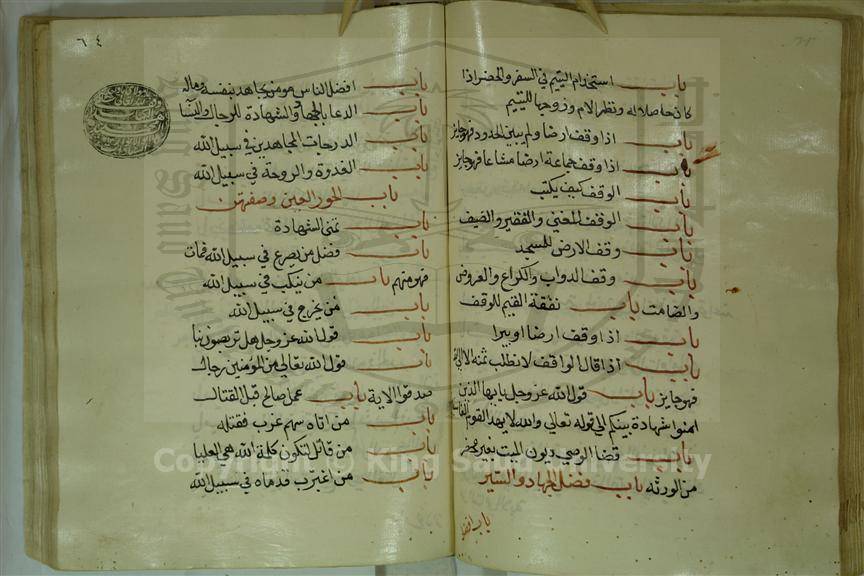 باب استخدام اليتيم في السفر والحضر اذا
كان صلاحا له ونظر الام وزوجها لليتيم
باب اذا وقف ارضا ولم يبين الحدود فهو جايز
باب اذا وقف جماعة ارضا مشاعا فهو جايز
باب الوقف كيف يكتب
باب الوقف للغني والفقير والضيف
باب وقف الارض للمسجد
باب وقف الدواب والكراع والعروض
والصامت باب نفقة القيم للوقف
باب اذا وقف ارضا او بيرا
باب اذا قال الواقف لا نطلب ثمنه الا الى الله
فهو جايز باب قول الله عز وجل يا يها الذين
امنوا شهادة بينكم الى قوله تعالى والله لا يهدي القوم الفاسقين
باب قضا الوصي ديون الميت بغير محضر
من الورثه باب فضل الجهاد والسير
باب افضل
٦٤
باب افضل الناس مومن يجاهد بنفسه وماله
باب الدعا بالجهاد والشهادة للرجال والنسا
باب الدرجات المجاهدين في سبيل الله
باب الغدوة والروحة في سبيل الله
باب الحور العين وصفتهن
باب تمنى الشهادة
باب فضل من يصرع في سبيل الله فمات
فهو منهم باب من ينكب في سبيل الله
باب من يخرج في سبيل الله
باب قول الله عز وجل هل تربصون بنا
باب قول الله تعالى من المؤمنين رجال
صدقوا الاية باب عمل صالح قبل القتال
باب من اتاه سهم غرب فقتله
باب من قاتل لتكون كلمة الله هي العليا
باب من اغبرت قدماه في سبيل الله
Copyright © King Saud University